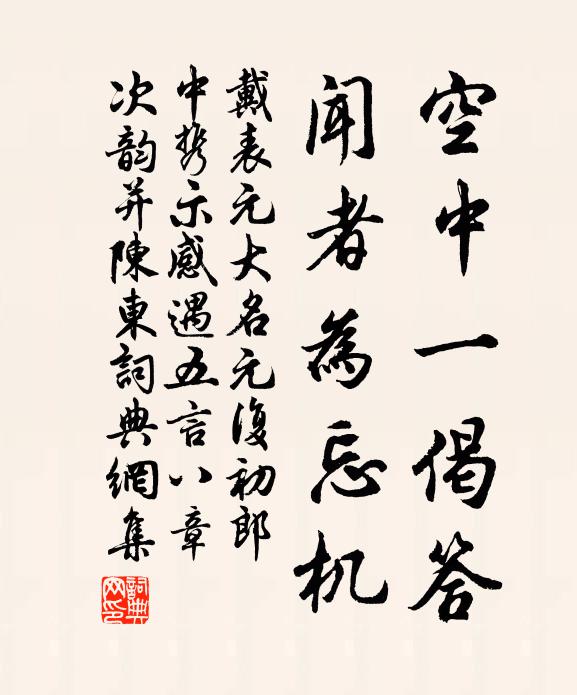 空中一偈答
闻者為忘机
戴表元大名元復初郎
中携示感遇五言八章
次韵并陳東詞典網集
詞典网印